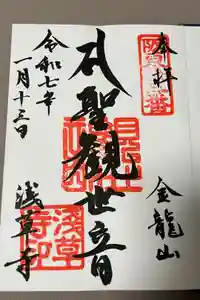 奉拝
金龍山
聖観世音
令和七年
一月十三日
浅草寺
浅草
寺印